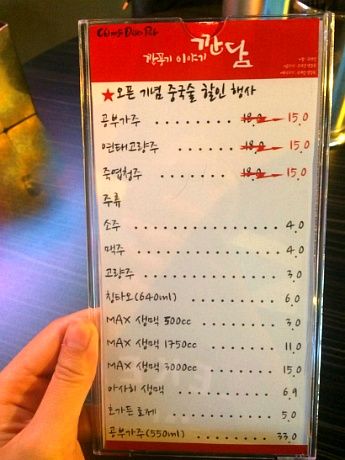 깐담
깐풍기 이야기
★오픈 기념 중국술 할인 행사
공부가주 18.0 15.0
연태고량주 18.0 15.0
죽엽청주 18.0 15.0
주류
소주 4.0
맥주 4.0
고량주 3.0
칭타오(640ml) 6.0
MAX 생맥 500cc 3.0
MAX 생맥 1750cc 11.0
MAX 생맥 3000cc 15.0
아사히 생맥 6.9
호가든 로제 5.0
공부가주(550ml) 33.0